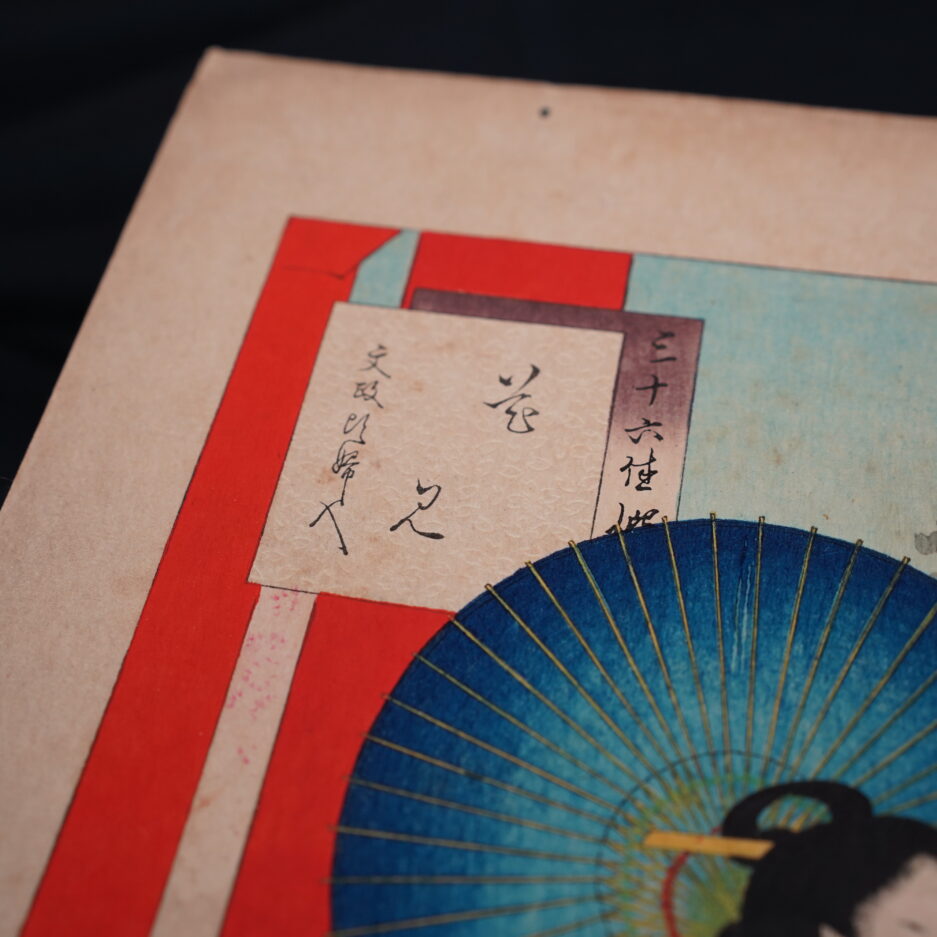 三十六佳撰
花見
文政頃婦人